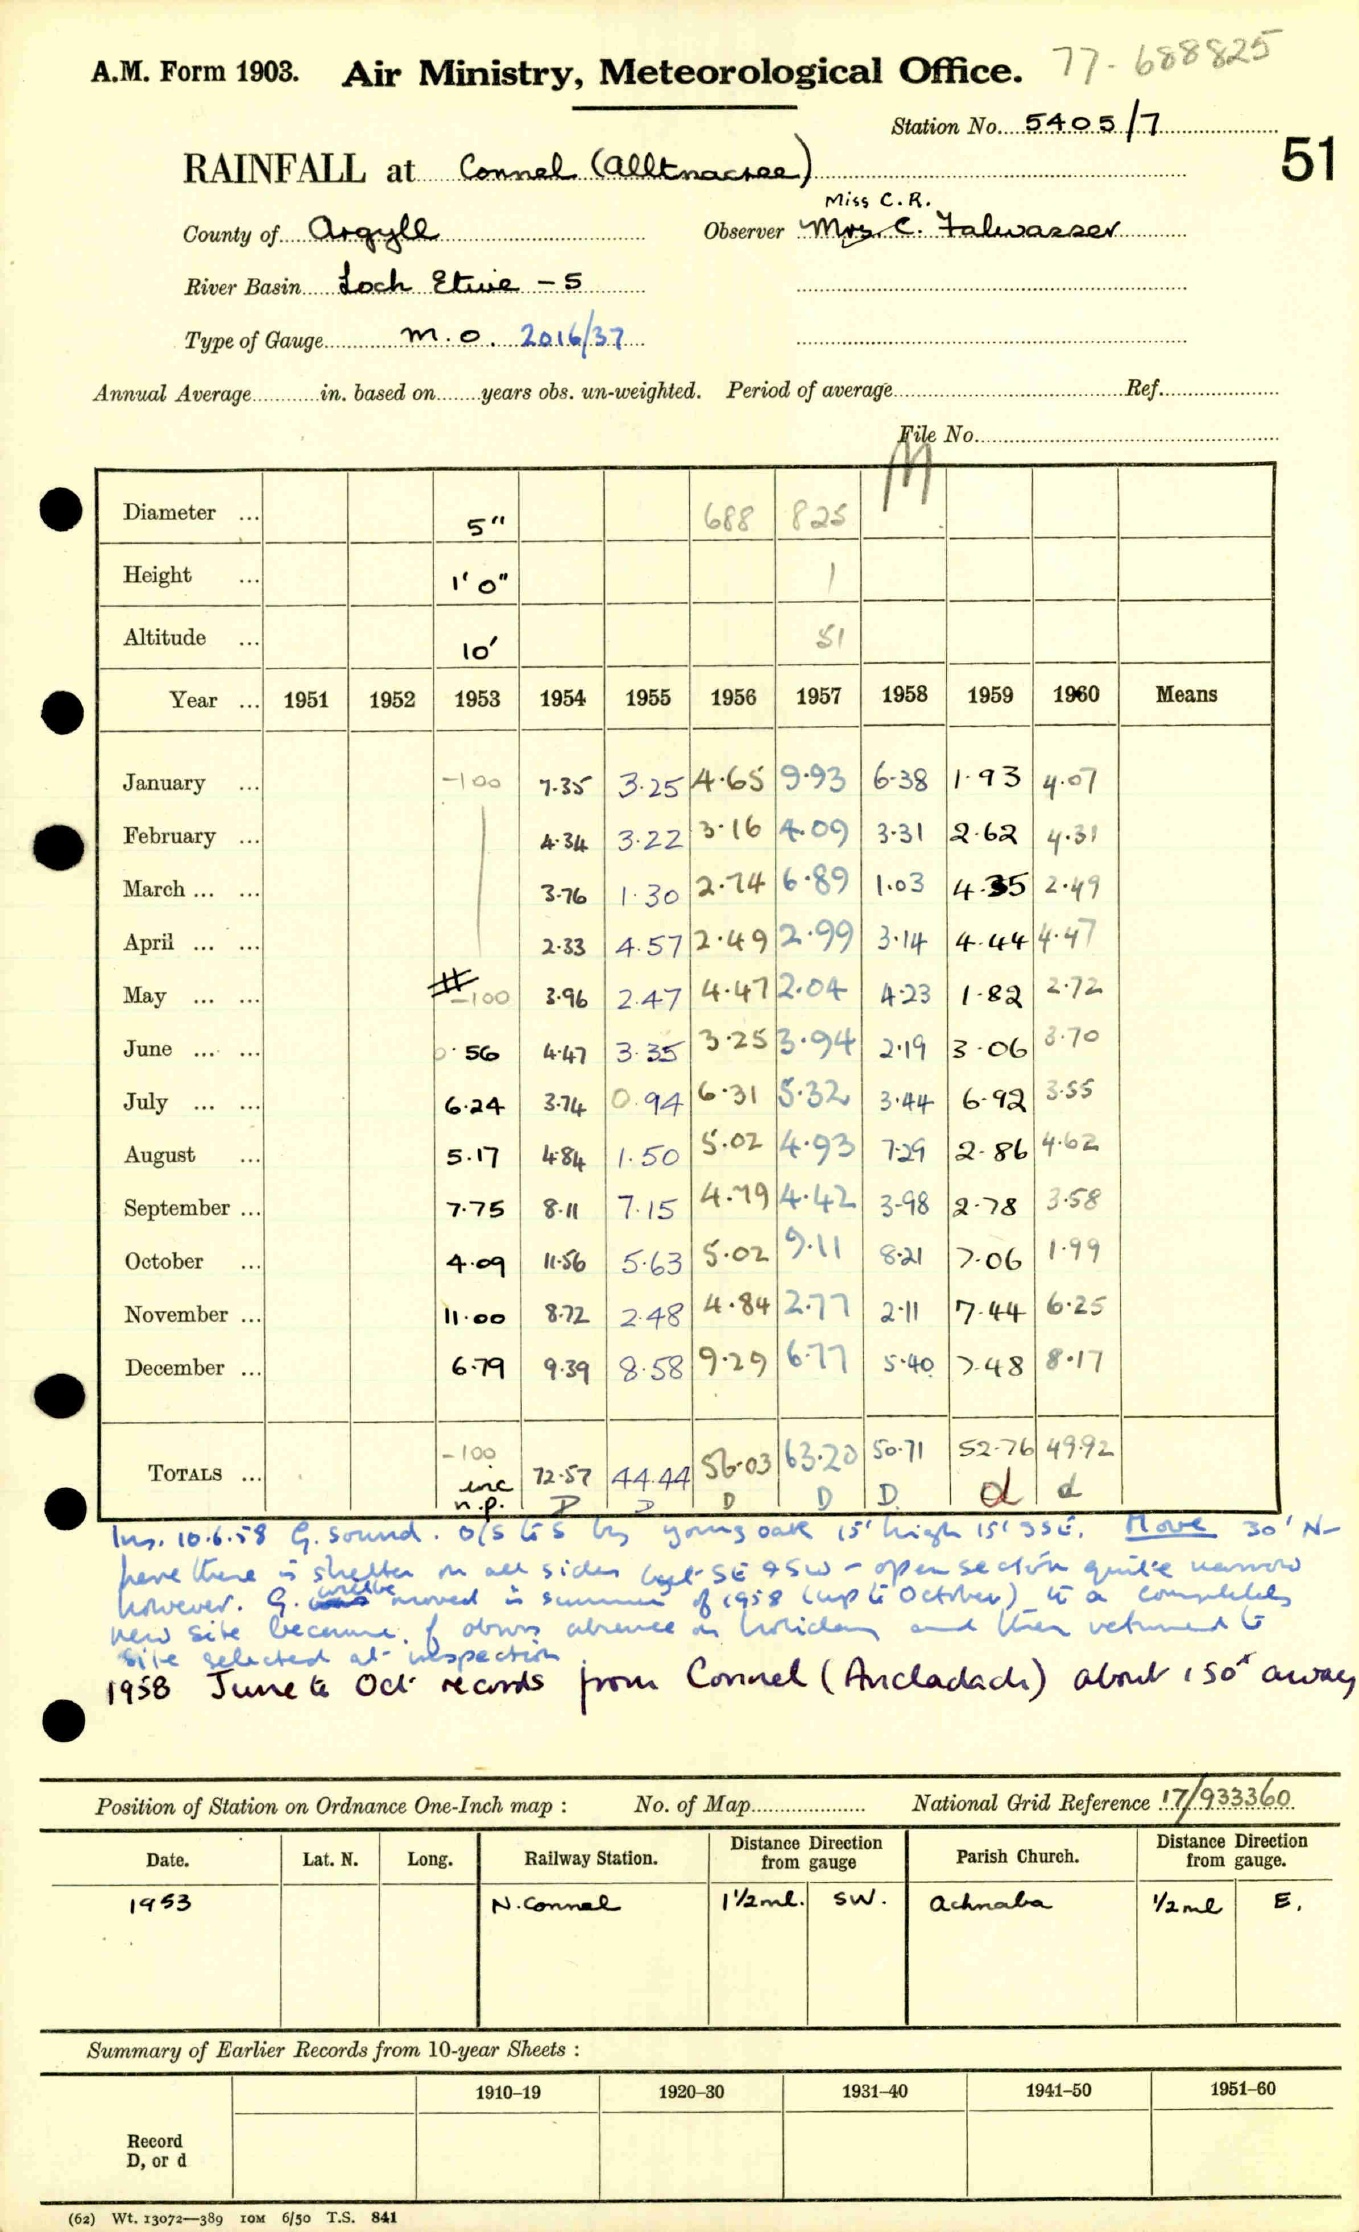 A.M. Form 1903. Air Ministry, Meteorological Office. 77-688825
Station No. 5405/7
51
RAINFALL at Connel (Alltnacree)
Miss C.R.
County of Argyll Observer Mrs. C. Falwasser
River Basin Loch Etive - 5
Type of Gauge M.O. 2016/37
Annual Average in. based on years obs. un-weighted. Period of average Ref.
File No.
M
Diameter ... 5" 688 825
Height ... 1' 0" 1
Altitude ... 10' 51
Year ... 1951 1952 1953 1954 1955 1956 1957 1958 1959 1960 Means
January ... -100 7.35 3.25 4.65 9.93 6.38 1.93 4.07
February ... 4.34 3.22 3.16 4.09 3.31 2.62 4.31
March ... ... 3.76 1.30 2.74 6.89 1.03 4.35 2.49
April ... ... 2.33 4.57 2.49 2.99 3.14 4.44 4.47
May ... ... -100 3.96 2.47 4.47 2.04 4.23 1.82 2.72
June ... ... 0.56 4.47 3.35 3.25 3.94 2.19 3.06 3.70
July ... ... 6.24 3.74 0.94 6.31 5.32 3.44 6.92 3.55
August ... 5.17 4.84 1.50 5.02 4.93 7.29 2.86 4.62
September ... 7.75 8.11 7.15 4.79 4.42 3.98 2.78 3.58
October ... 4.09 11.56 5.63 5.02 9.11 8.21 7.06 1.99
November ... 11.00 8.72 2.48 4.84 2.77 2.11 7.44 6.25
December ... 6.79 9.39 8.58 9.29 6.77 5.40 7.48 8.17
-100
TOTALS ... inc 72.57 44.44 56.03 63.20 50.71 52.76 49.92
n.p. D D D D D d d
Ins. 10.6.58 G. sound. O/S to S by young oak 15' high 15' SSE. Move 30' N-
here there is shelter on all sides but SE & SW - open section quite narrow
however. G. will be moved in summer of 1958 (up to October) to a completely
new site because of obsvrs absence on holiday and then returned to
site selected at inspection
1958 June to Oct records from Connel (Ancladach) about 150x away
Position of Station on Ordnance One-Inch map : No. of Map National Grid Reference 17/933360
Date. Lat. N. Long. Railway Station. Distance Direction from gauge Parish Church. Distance Direction from gauge.
1953 N. Connel 1½ml. SW. Achnaba ½ml E.
Summary of Earlier Records from 10-year Sheets :
1910-19 1920-30 1931-40 1941-50 1951-60
Record
D, or d
(62) Wt. 13072—389 10M 6/50 T.S. 841